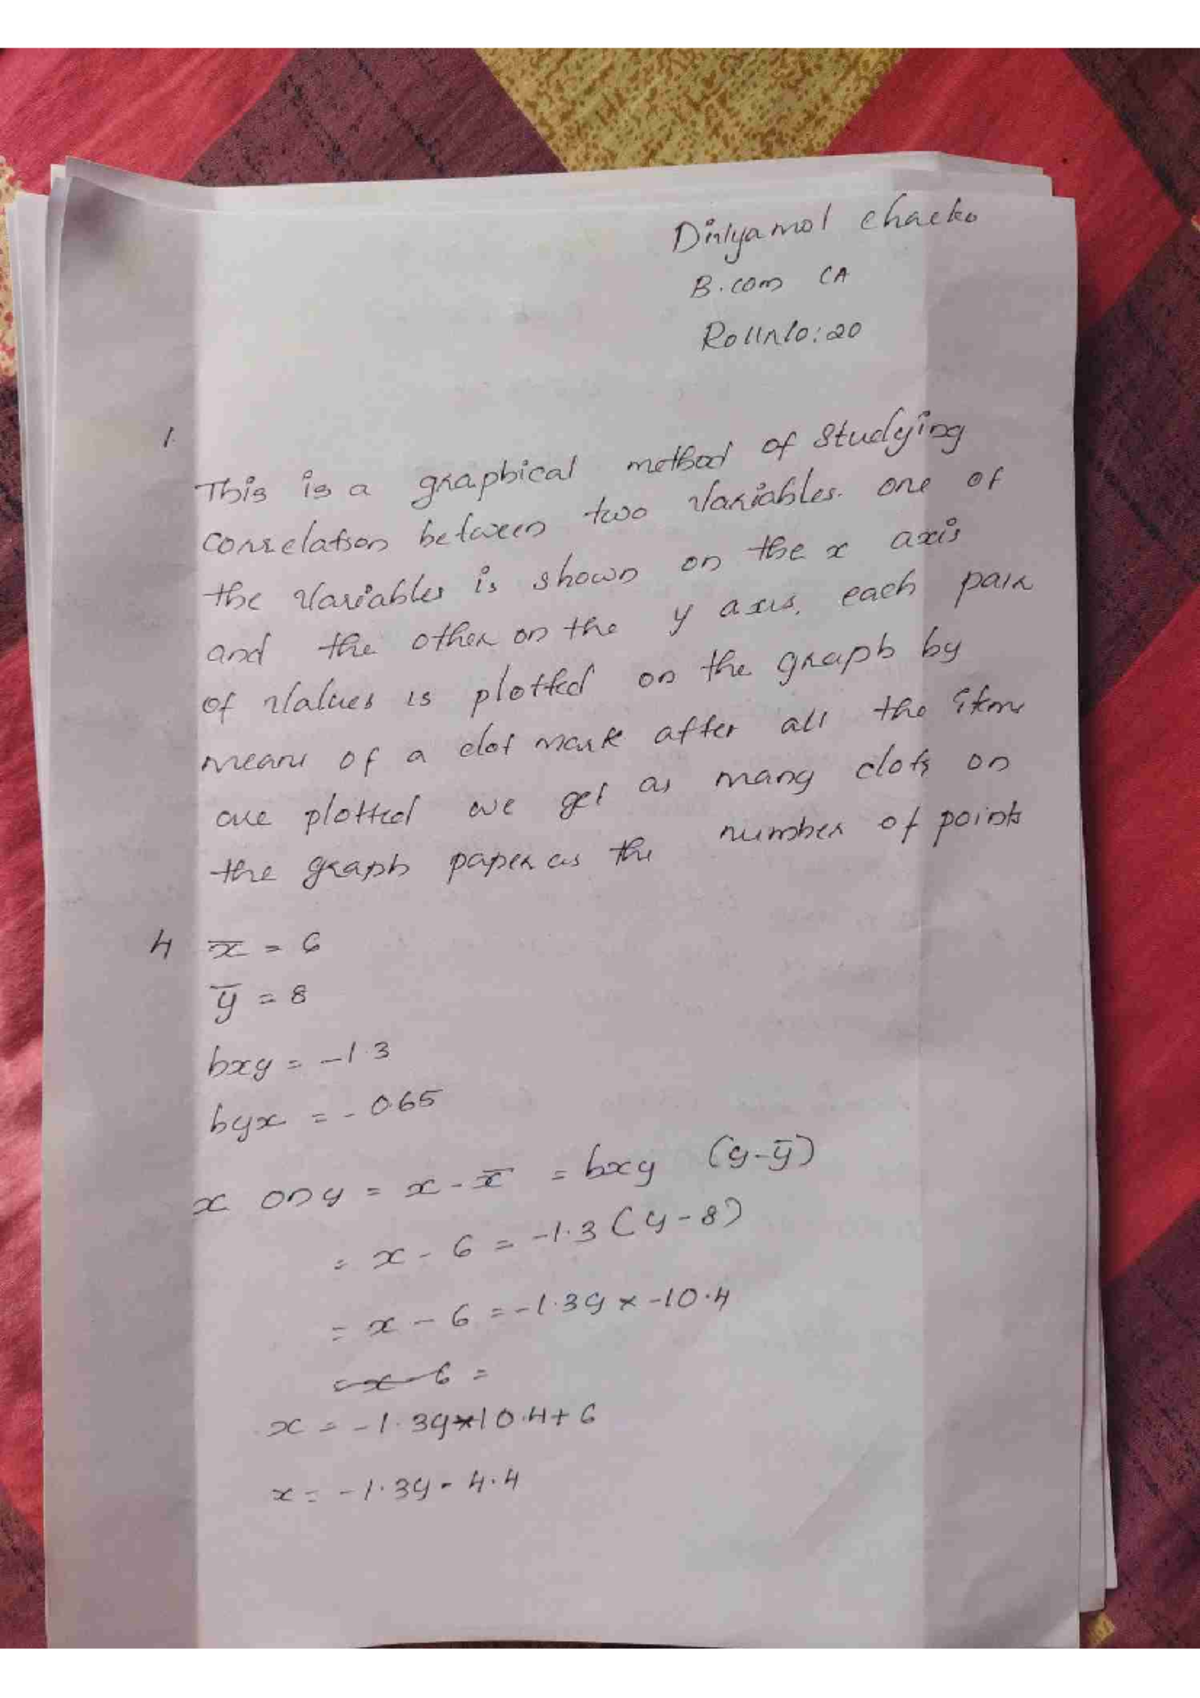 Chacko
B.com CA
Roll No: 20
1.
This is a graphical method of studying
correlation between two variables. one of
the variables is shown on the x axis
and the other on the y axis. each pair
of values is plotted on the graph by
means of a dot mark after all the items
are plotted we get as many dots on
the graph paper as the number of points
4 x̅ = 6
y̅ = 8
bxy = -1.3
byx = -0.65
x on y = x - x̅ = bxy (y - y̅)
= x - 6 = -1.3 (y - 8)
= x - 6 = -1.3y × -10.4
= x - 6 =
x = -1.3y 10.4 + 6
x = -1.3y - 4.4